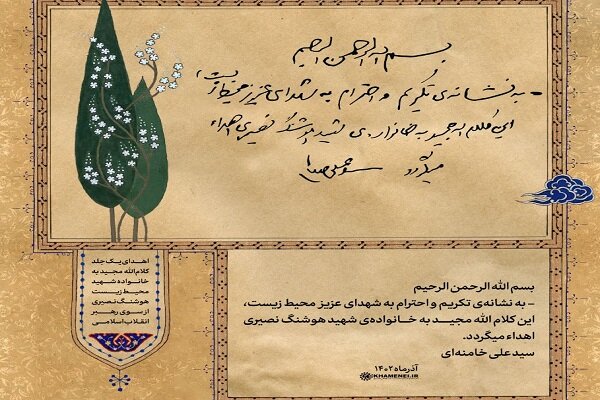 بسم الله الرحمن الرحیم
- به نشانه‌ی تکریم و احترام به شهدای عزیز محیط زیست،
این کلام الله مجید به خانواده‌ی شهید هوشنگ نصیری اهداء
میگردد سیدعلی خامنه‌ای
اهدای یک جلد
کلام‌الله مجید به
خانواده شهید
محیط زیست
هوشنگ نصیری
از سوی رهبر
انقلاب اسلامی
بسم الله الرحمن الرحیم
- به نشانه‌ی تکریم و احترام به شهدای عزیز محیط زیست،
این کلام الله مجیـــد به خـانواده‌ی شهید هوشنگ نصیری
اهداء میگردد.
سیدعلی خامنه‌ای
آذرماه ۱۴۰۲
KHAMENEI.IR